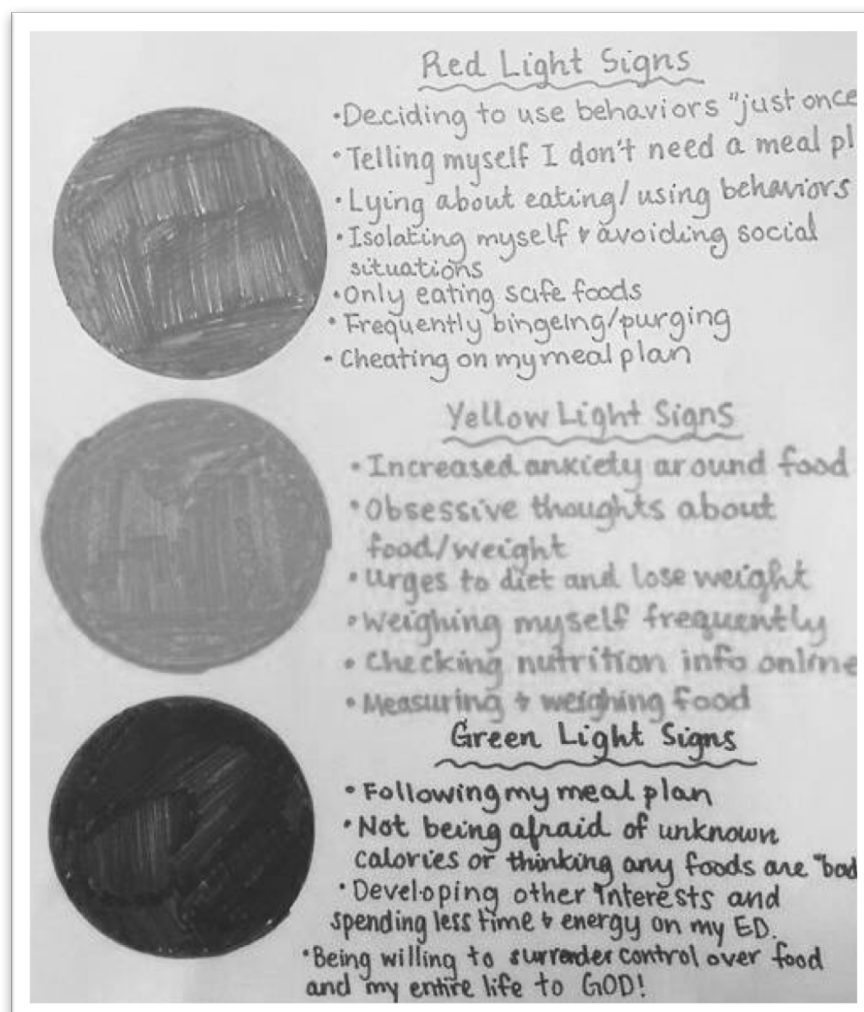 Red Light Signs
•Deciding to use behaviors "just once
•Telling myself I don't need a meal pl
•Lying about eating/using behaviors
•Isolating myself & avoiding social
situations
•Only eating safe foods
•Frequently bingeing/purging
•Cheating on my meal plan
Yellow Light Signs
•Increased anxiety around food
•Obsessive thoughts about
food/weight
•Urges to diet and lose weight
•Weighing myself frequently
•Checking nutrition info online
•Measuring & weighing food
Green Light Signs
•Following my meal plan
•Not being afraid of unknown
calories or thinking any foods are "bad
•Developing other interests and
spending less time & energy on my ED.
•Being willing to surrender control over food
and my entire life to GOD!